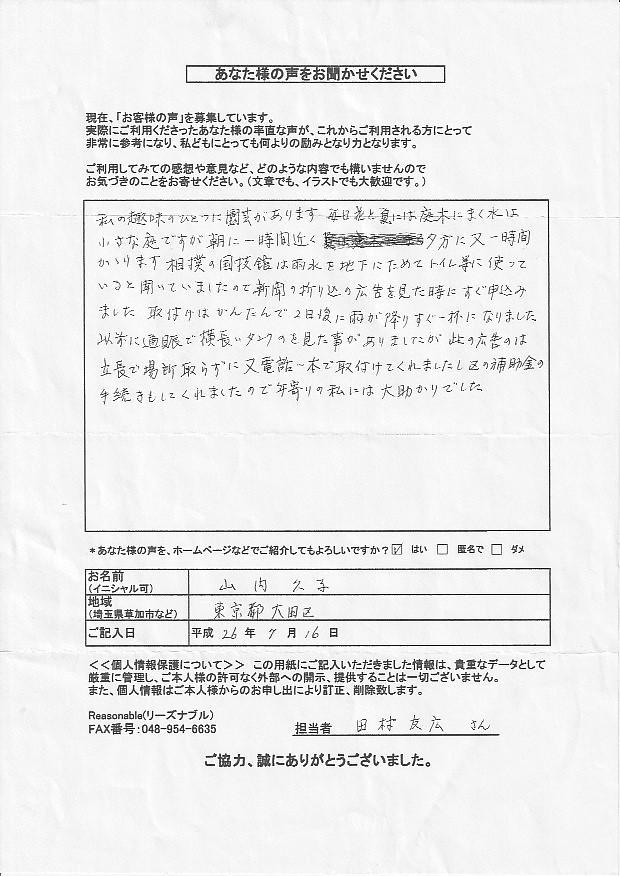 あなた様の声をお聞かせください
現在、「お客様の声」を募集しています。
実際にご利用くださったあなた様の率直な声が、これからご利用される方にとって
非常に参考になり、私どもにとっても何よりの励みとなり力となります。
ご利用してみての感想や意見など、どのような内容でも構いませんので
お気づきのことをお寄せください。(文章でも、イラストでも大歓迎です。)
私の趣味のひとつに園芸があります 夏には庭木にまく水は
小さな庭ですが朝に一時間近く 夕方に又一時間
かゝります 相撲の国技館は雨水を地下にためてトイレ等に使って
いると聞いていましたので新聞の折り込の広告を見た時にすぐ申込み
ました 取付けはかんたんで2日後に雨が降りすぐ一杯になりました
以前に通販で横長いタンクのを見た事がありましたが 此の広告のは
立長で場所取らずに又電話一本で取付けてくれましたし区の補助金の
手続きもしてくれましたので年寄りの私には大助かりでした
*あなた様の声を、ホームページなどでご紹介してもよろしいですか? ☑ はい □ 匿名で □ ダメ
お名前
(イニシャル可) 山内久子
地域
(埼玉県草加市など) 東京都大田区
ご記入日 平成 26 年 7 月 16 日
<<個人情報保護について>> この用紙にご記入いただきました情報は、貴重なデータとして
厳重に管理し、ご本人様の許可なく外部への開示、提供することは一切ございません。
また、個人情報はご本人様からのお申し出により訂正、削除致します。
Reasonable(リーズナブル)
FAX番号:048-954-6635
担当者 田村友広 さん
ご協力、誠にありがとうございました。